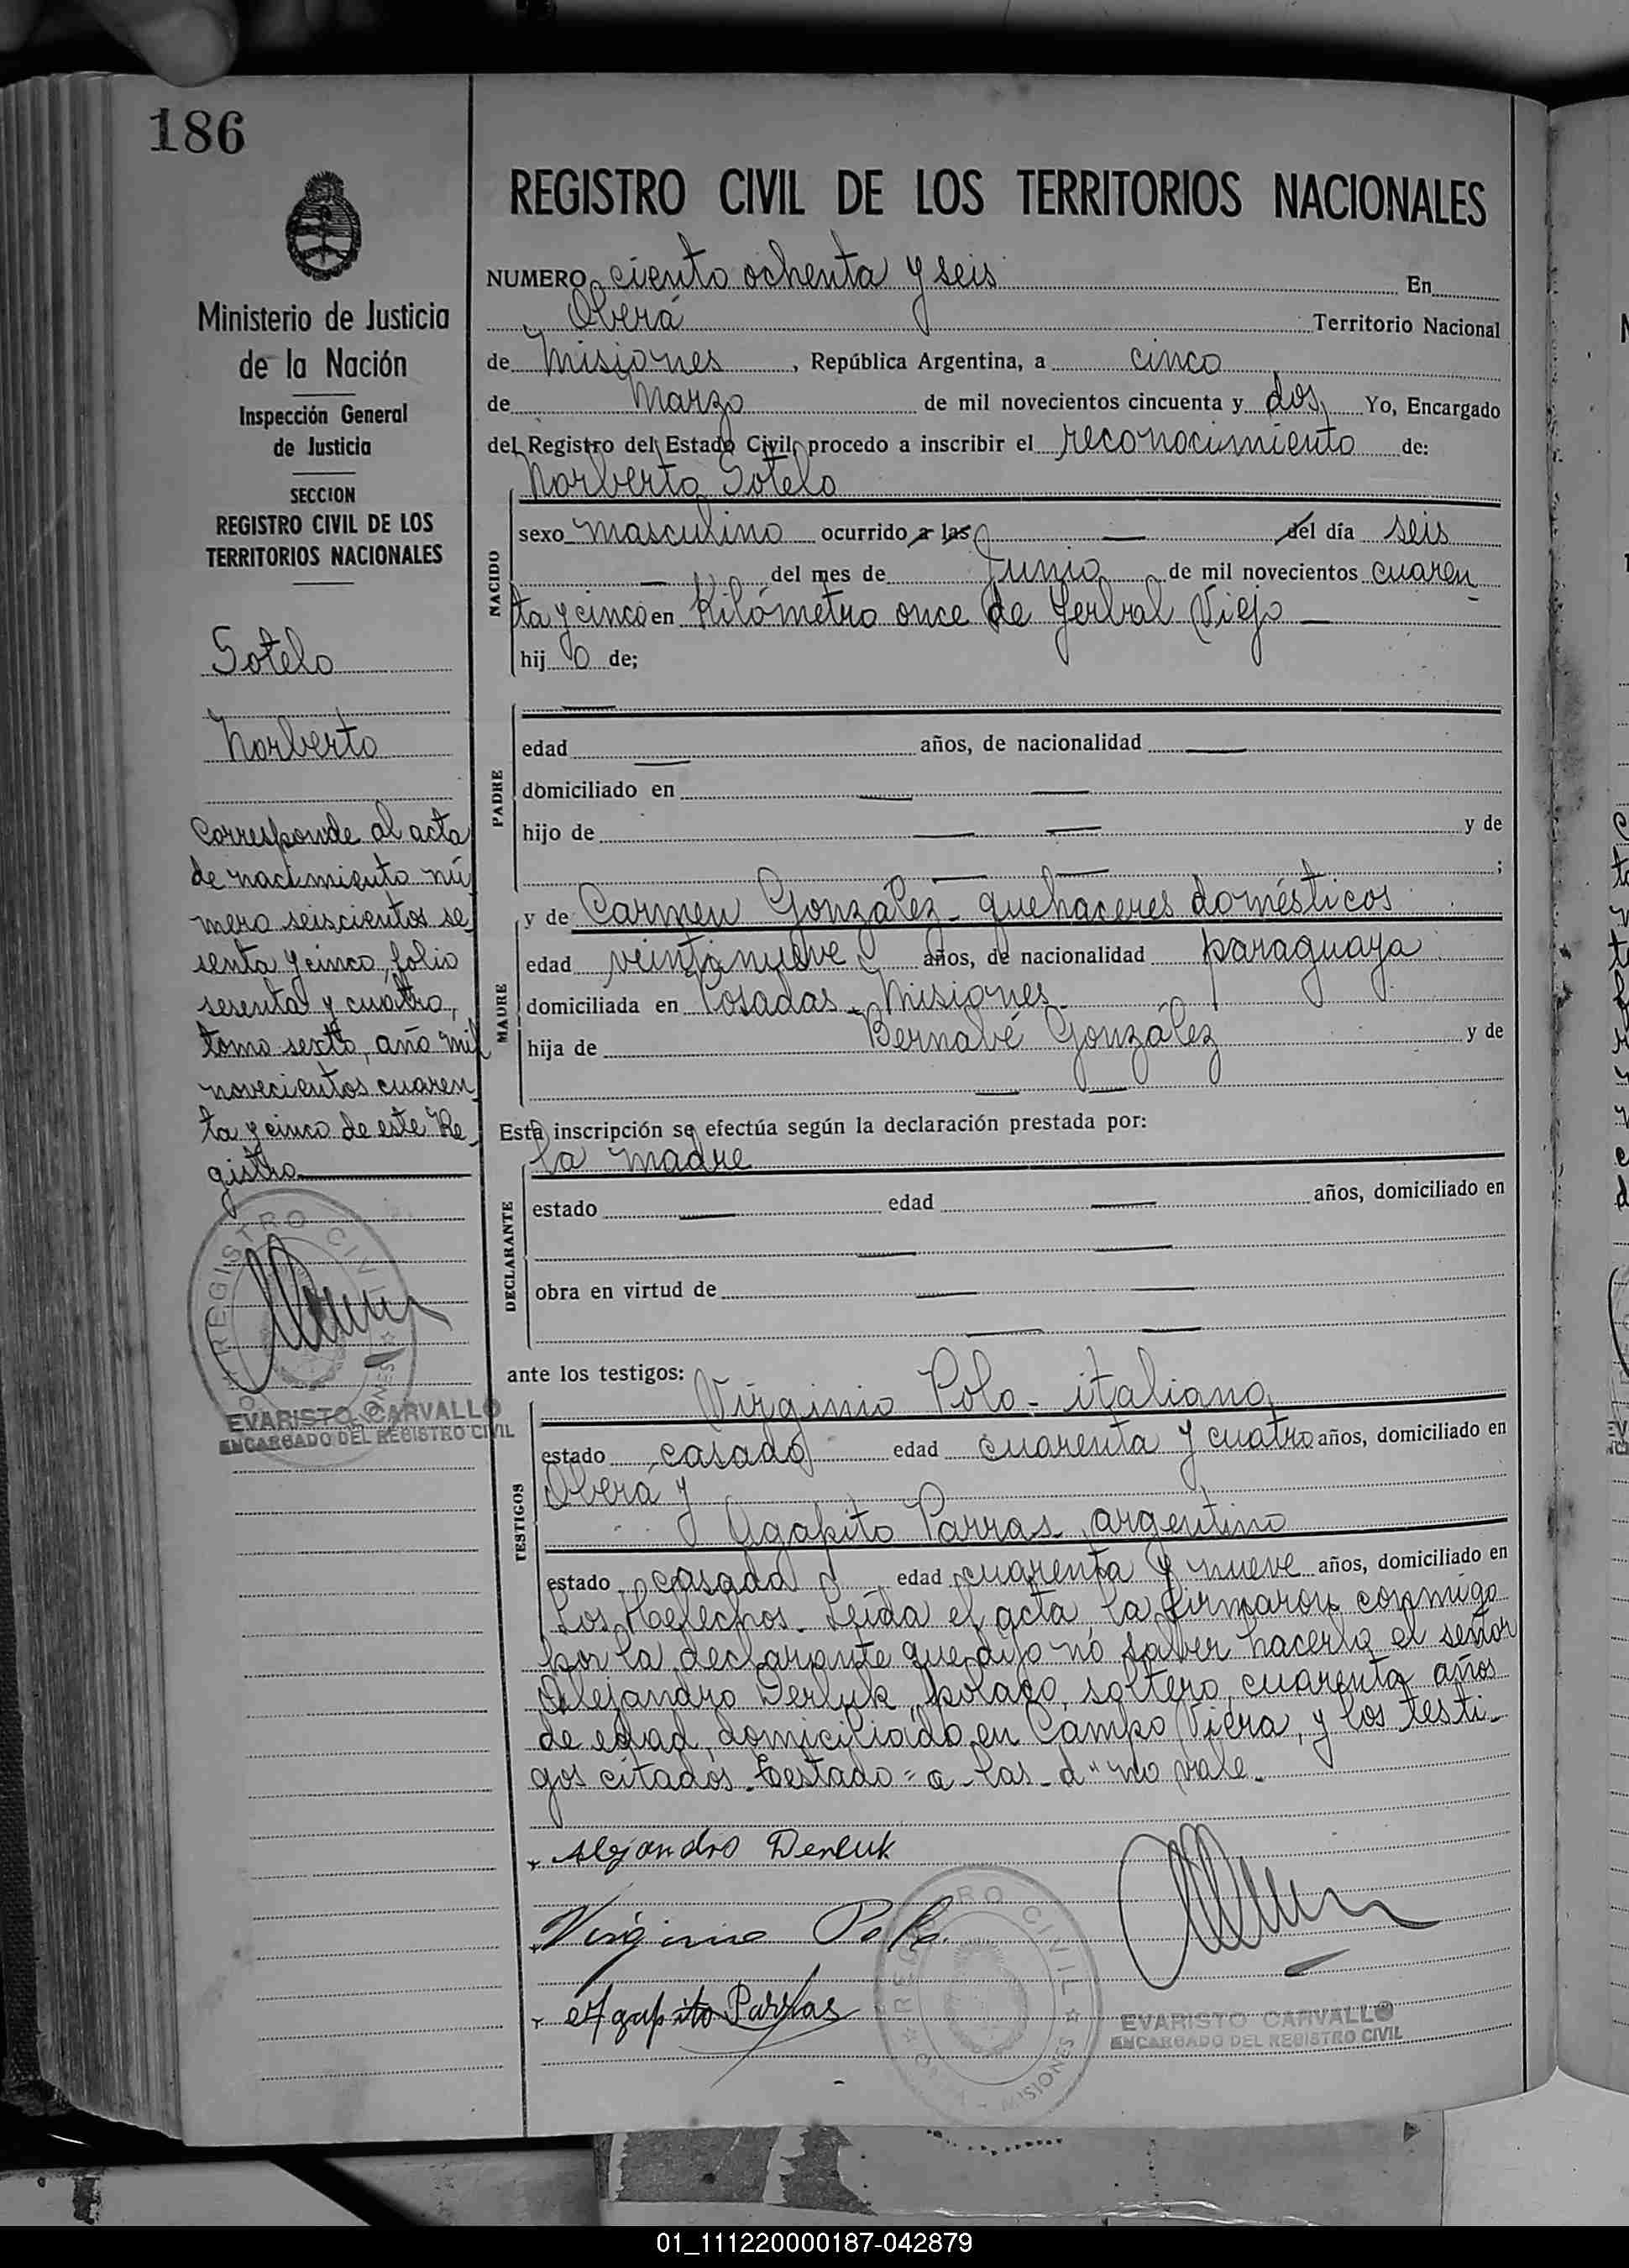 186
Ministerio de Justicia
de la Nación
Inspección General
de Justicia
SECCION
REGISTRO CIVIL DE LOS
TERRITORIOS NACIONALES
Sotelo
Norberto
Corresponde al acta
de nacimiento nú
mero seiscientos se
senta y cinco, folio
sesenta y cuatro,
tomo sexto, año mil
novecientos cuaren
ta y cinco de este Re
gistro
REGISTRO CIVIL
EVARISTO CARVALLO
ENCARGADO DEL REGISTRO CIVIL
REGISTRO CIVIL DE LOS TERRITORIOS NACIONALES
NUMERO ciento ochenta y seis En
Oberá Territorio Nacional
de Misiones, República Argentina, a cinco
de Marzo de mil novecientos cincuenta y dos, Yo, Encargado
del Registro del Estado Civil, procedo a inscribir el reconocimiento de:
Norberto Sotelo
NACIDO
sexo masculino ocurrido a las — del día seis
— del mes de Junio de mil novecientos cuaren
ta y cinco en Kilómetro once de Yerbal Viejo —
hij o de;
PADRE
edad años, de nacionalidad
domiciliado en
hijo de y de
;
MADRE
y de Carmen González - quehaceres domésticos
edad veintinueve años, de nacionalidad paraguaya
domiciliada en Posadas - Misiones
hija de Bernabé González y de
Esta inscripción se efectúa según la declaración prestada por:
la madre
DECLARANTE
estado edad años, domiciliado en
obra en virtud de
ante los testigos:
TESTIGOS
Virginio Polo - italiano
estado casado edad cuarenta y cuatro años, domiciliado en
Oberá y
Agapito Parras - argentino
estado casado edad cuarenta y nueve años, domiciliado en
Los Helechos. Leída el acta, la firmaron conmigo
por la declarante que dijo no saber hacerlo el señor
Alejandro Derluk, polaco, soltero, cuarenta años
de edad, domiciliado en Campo Viera, y los testi-
gos citados. Testado = a - las - d" no vale.
Alejandro Derluk
Virginio Polo
Agapito Parras
REGISTRO CIVIL
MISIONES
EVARISTO CARVALLO
ENCARGADO DEL REGISTRO CIVIL
01_111220000187-042879